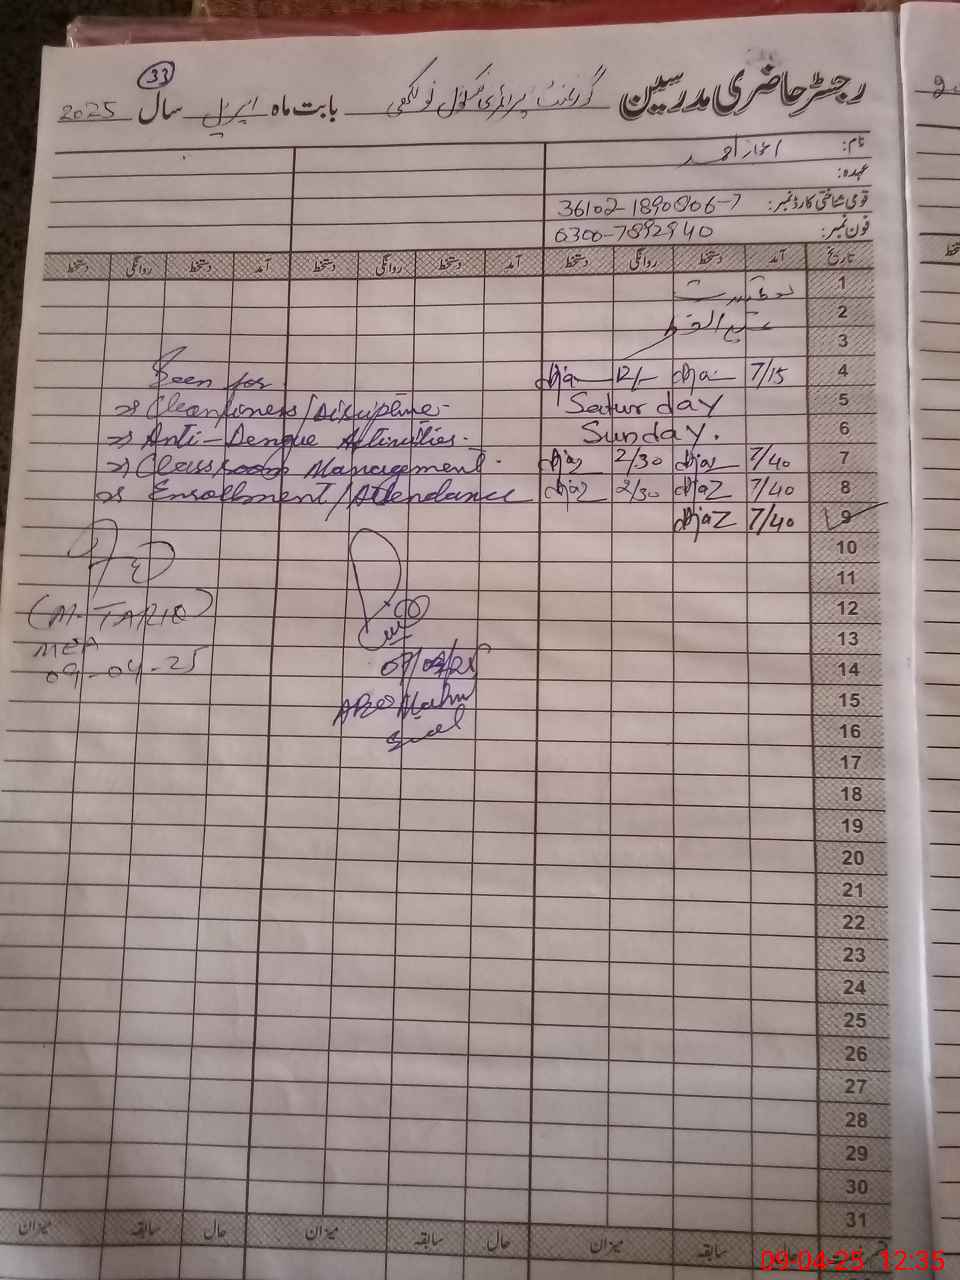 33
رجسٹر حاضری مدرسین گورنمنٹ پرائمری سکول نولکھی بابت ماہ اپریل سال 2025
نام: اعجاز احمد
عہدہ:
قومی شناختی کارڈ نمبر: 36102-1890806-7
فون نمبر: 0300-7892940
تاریخ آمد دستخط روانگی دستخط آمد دستخط روانگی دستخط آمد دستخط روانگی دستخط
1
2 عید الفطر
3
4 7/15 12/-
5 Saturday
6 Sunday.
7 7/40 Ajaz 2/30 Ajaz
8 7/40 AjaZ 2/30 Ajaz
9 7/40 AjaZ
Seen for
=> Cleanliness/Discipline-
=> Anti-Dengue Activities.
=> Classroom Management.
=> Enrollment/Attendance
10
11
12
13
14
15
16
17
18
19
20
21
22
23
24
25
26
27
28
29
30
31
(M. TARIQ)
MEA
09-04-25
حال سابقہ میزان حال سابقہ میزان حال سابقہ میزان
09-04-25 12:35